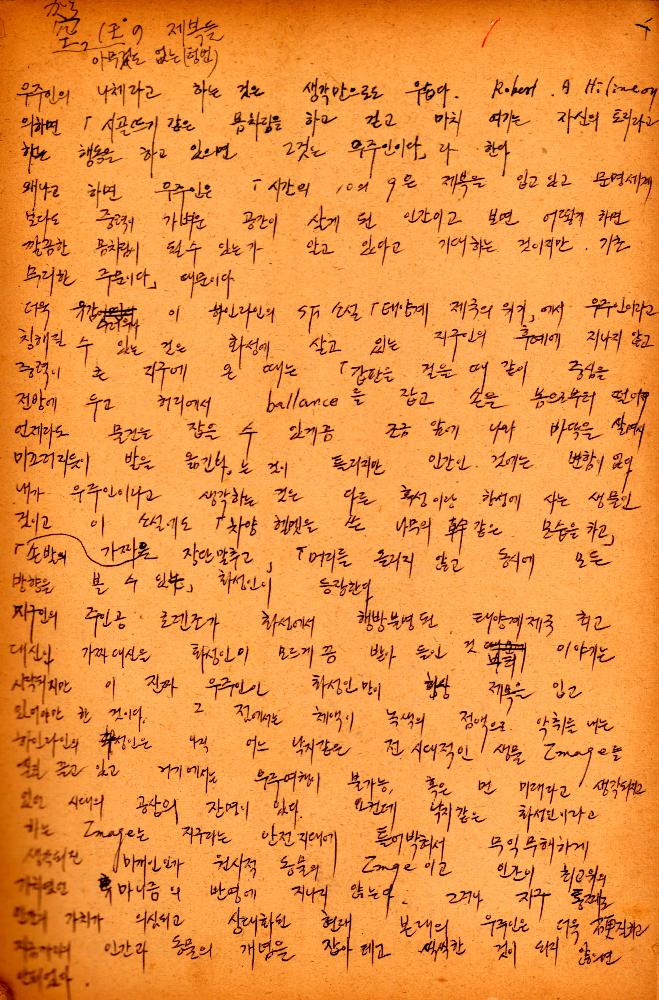 제복들
아무것도 없는
우주인의 나체라고 하는 것은 생각만으로도 우습다. Robert. A
의하면 「시골뜨기 같은 몸차림을 하고 걷고 마치 여기는 자신의 토지라고
하는 행동을 하고 있으면 그것은 우주인이다」라 한다
왜냐고 하면 우주인은 「시간의 10의 9은 제복을 입고 있고 문명세계
보다도 중력이 가벼운 공간이 살게 된 인간이고 보면 어떻게 하면
깔끔한 몸차림이 될 수 있는가 알고 있다고 기대하는 것이지만.
무리한 주문이다」 때문이다
더욱 이 하인라인의 SF 소설 「태양계 제국의 위기」에서 우주인이라고
칭해질 수 있는 것은 화성에 살고 있는 지구인의 후예에 지나지 않고
중력이 큰 지구에 온 때는 「갑판을 걸을 때 같이 중심을
전방에 두고 허리에서 ballance를 잡고 손을 몸으로부터
언제라도 물건을 잡을 수 있게끔 조금 앞에 나와 바닥을
미끄러지듯이 발을 옮긴다」는 것이 틀리지만 인간인 것에는 변함이 없다
내가 우주인이라고 생각하는 것은 다른 혹성이랑 항성에 사는 생물인
것이고 이 소설에도 「차양 헬멧을 쓴 나무의 幹 같은 모습을 하고」
「손발의 가짜를 장단맞추고」, 「머리를 돌리지 않고 동시에 모든
방향을 볼 수 있는」 화성인이 등장한다
지구인의 주인공 로렌조가 화성에서 행방불명된 태양계제국 최고
대신인 가짜대신을 화성인이 모르게끔 받아들인 것 이야기는
시작되지만 이 진짜 우주인인 화성인만이 항상 제복을 입고
있어야만 한 것이다. 그 점에서는 체액이 녹색의 점액으로 악취를 내는
하인라인의 화성인은 아직 어느 낙지같은 전시대적인 생물 Image를
끌고 있고 거기에서는 우주여행이 불가능, 혹은 먼 미래라고 생각되고
있던 시대의 공상의 잔영이 있다. 요컨데 낙지같은 화성인이라고
하는 Image는 지구라는 안전지대에 틀어박혀서 무익무해하게
생각되던 미개인인가 원시적 동물의 Image이고 인간이 최고위의
가치였던 의 반영에 지나지 않는다. 그러나 지구
인간의 가치가 의심되고 상대화된 현재 본래의 우주인은 더욱
인간과 동물의 개념을 잡아떼고 씩씩한 것이 되지 않으면
안되었다.